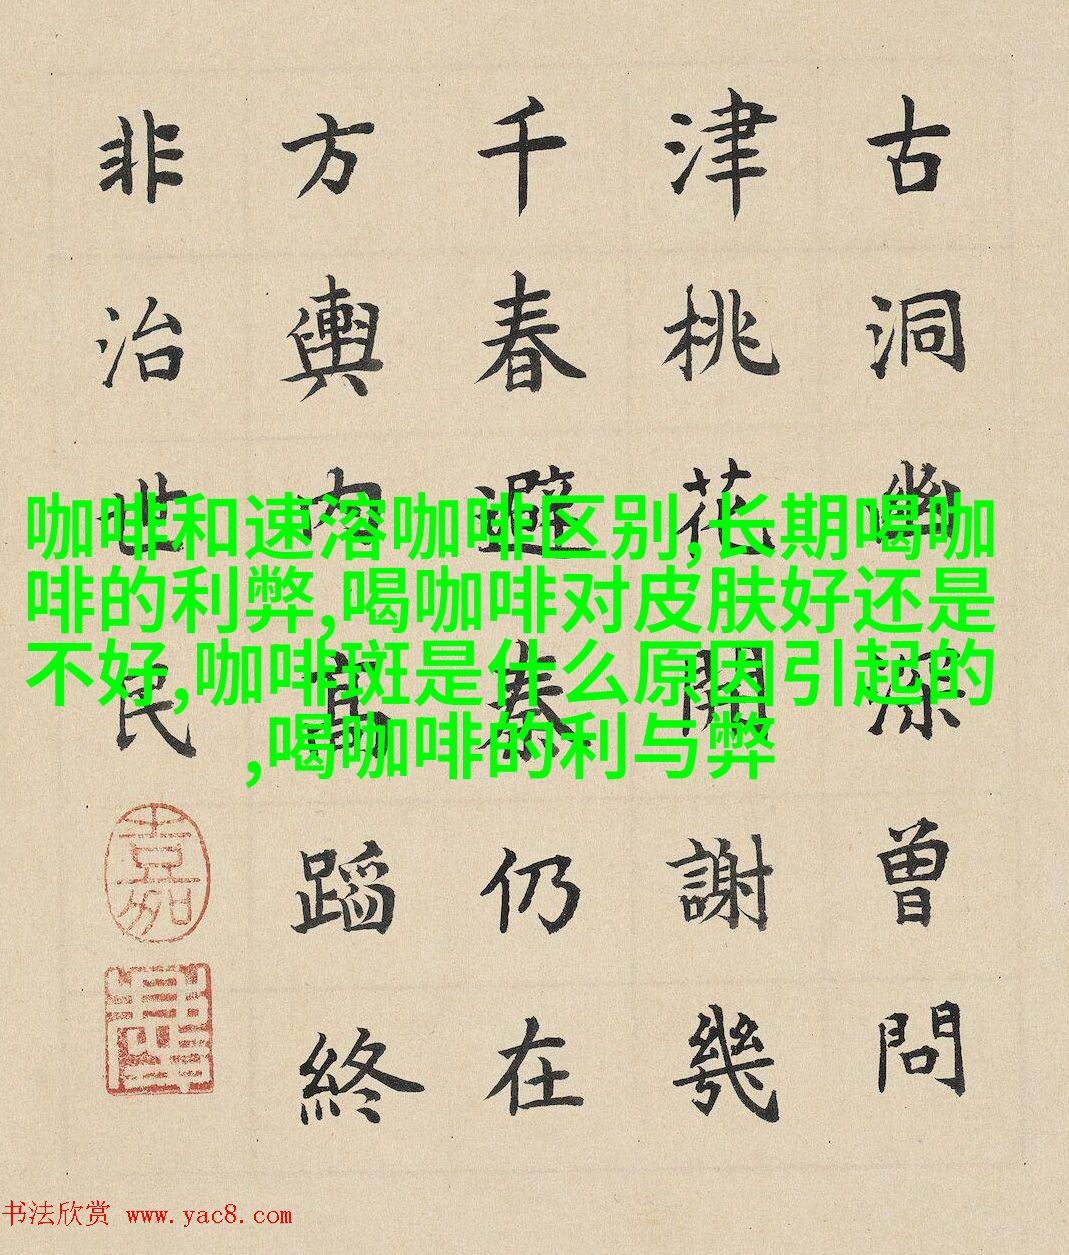 古洞幽深曾問
津桃花開謝幾
千春避秦仍在
方輿内髙蹈終
非治世民
咖啡和速溶咖啡区别,长期喝咖
啡的利弊,喝咖啡对皮肤好还是
不好,咖啡斑是什么原因引起的
,喝咖啡的利与弊
书法欣赏 www.yac8.com